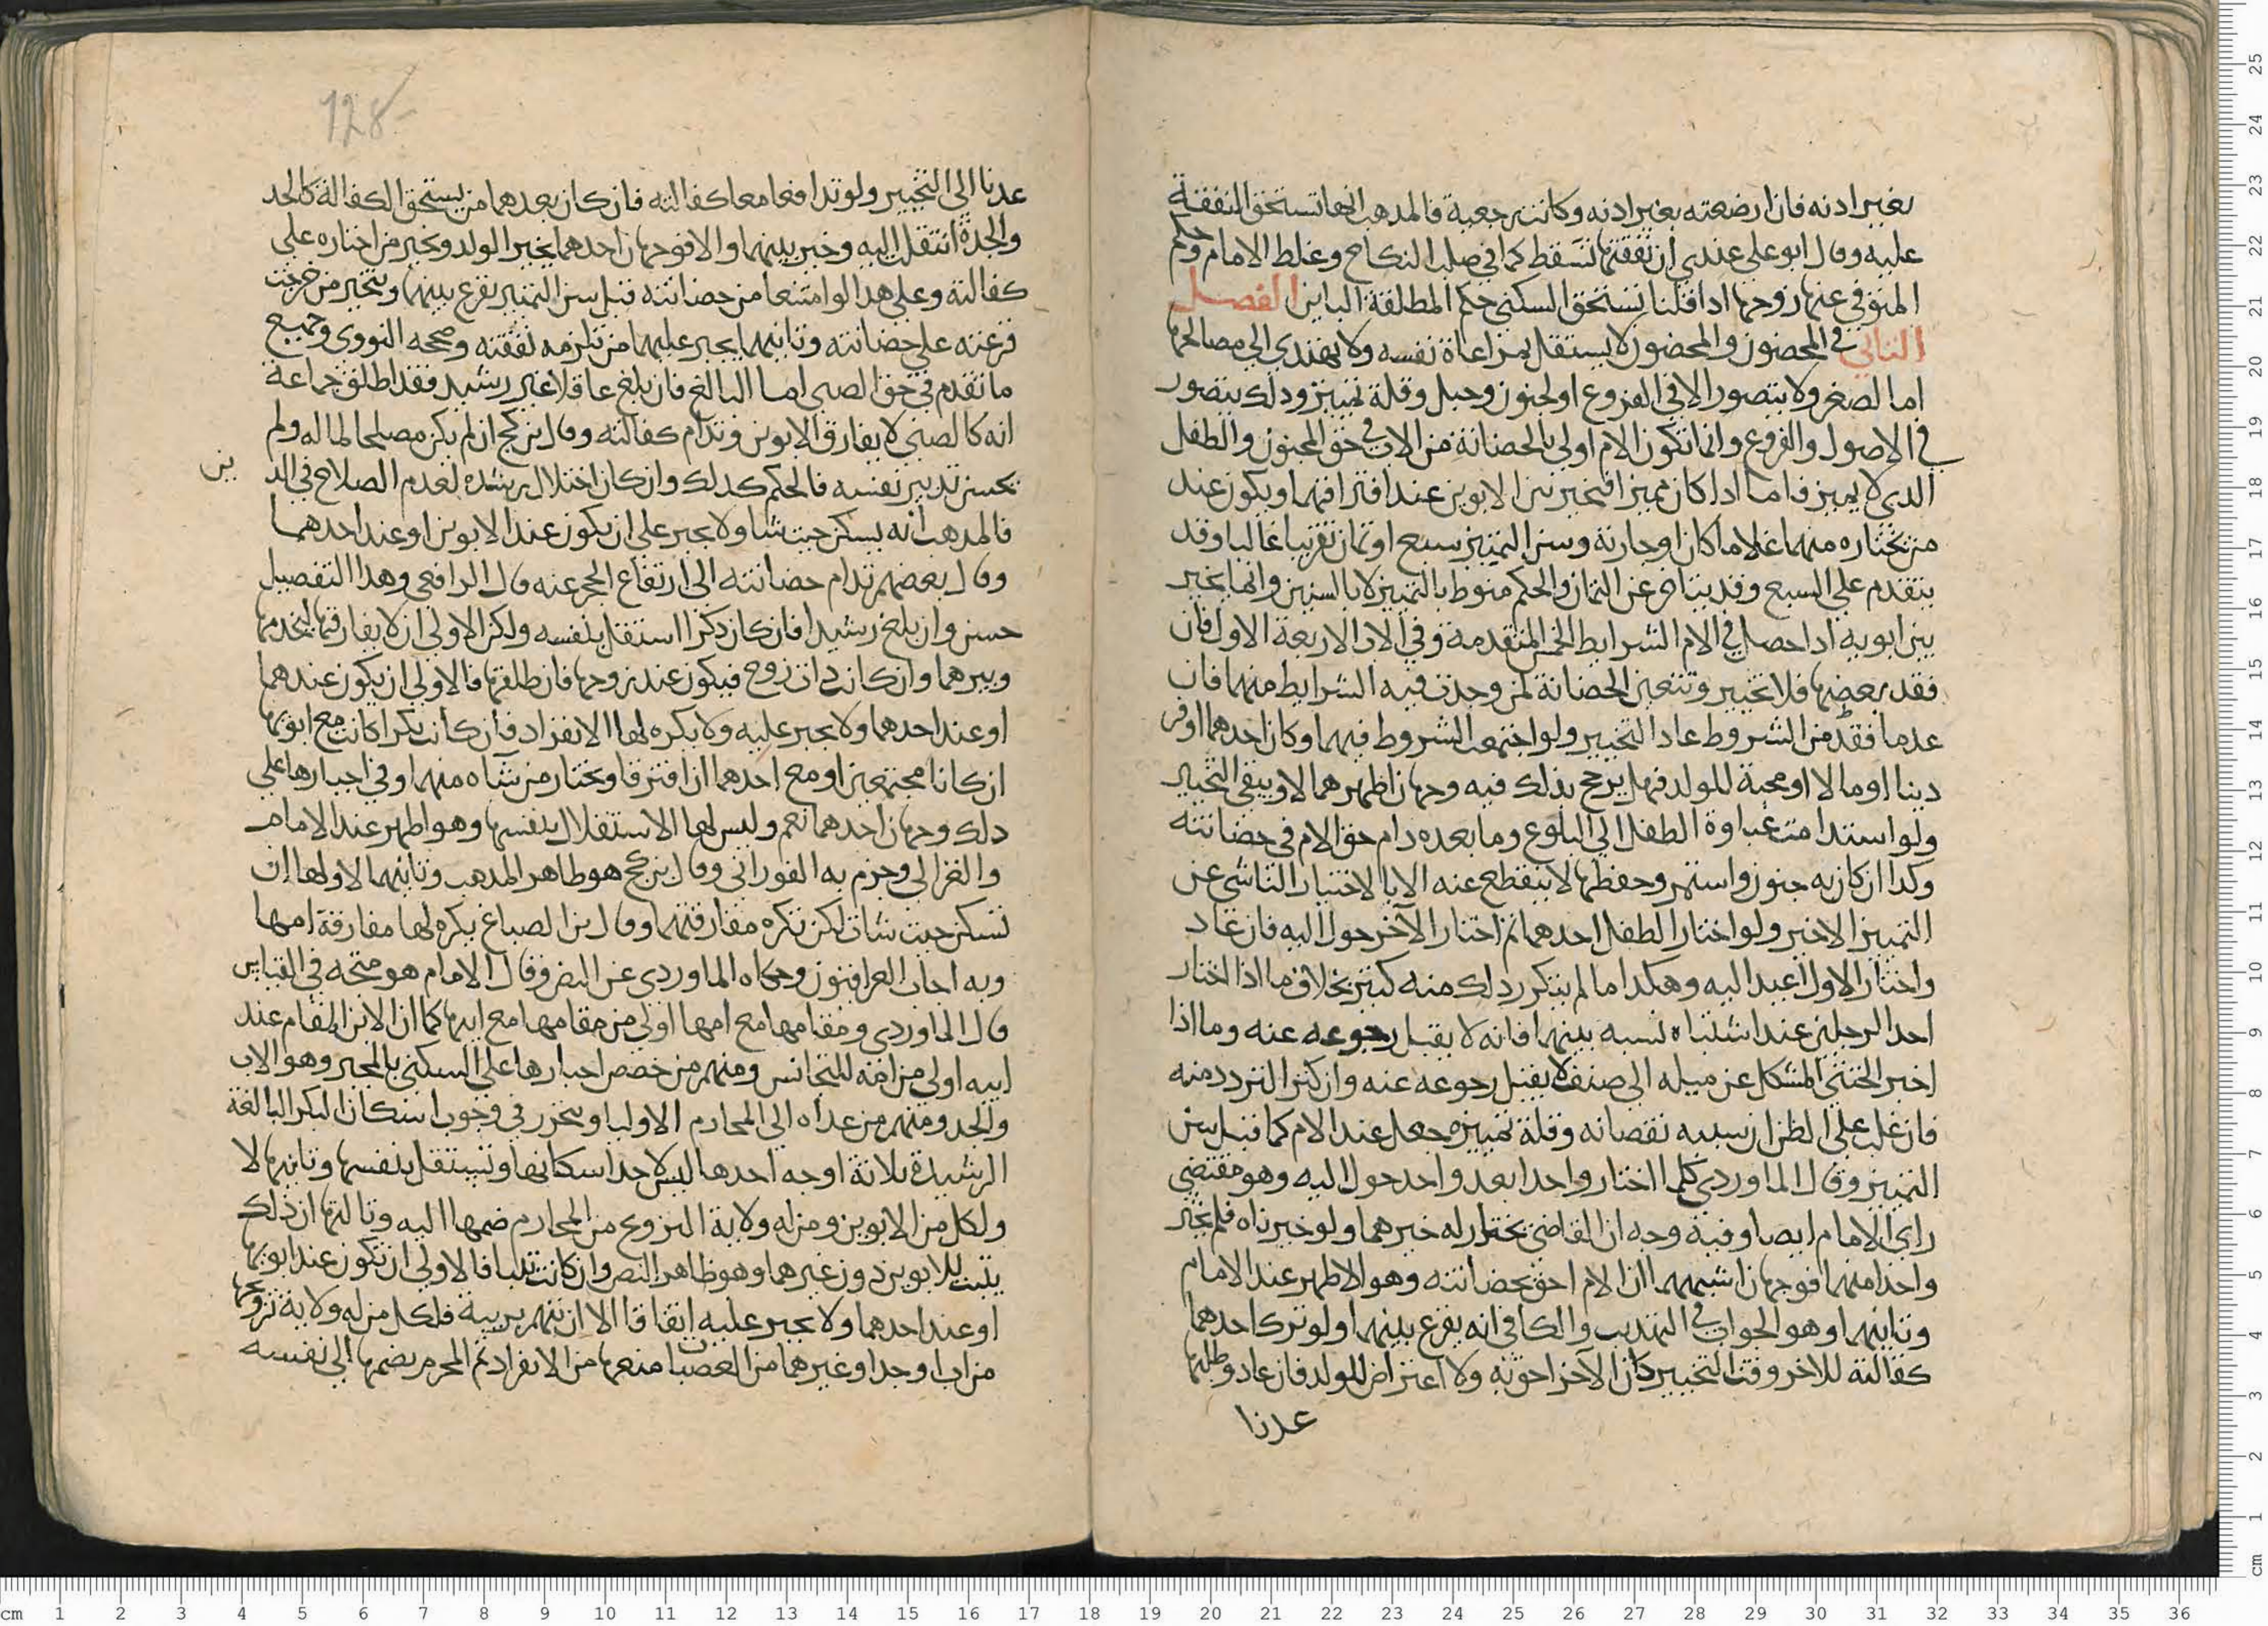 بغير اذنه فان ارضعته بغير اذنه وكانت رجعية فالمذهب انها تستحق النفقة
عليه وقال ابو على عندي ان نفقتها تسقط كما في صلب النكاح وغلط الامام وحكم
المتوفى عنها زوجها اذا قلنا تستحق السكنى حكم المطلقة الباين الفصل
الثاني في المحضون والمحضون لا يستقل بمراعاة نفسه ولا يهتدي الى مصالحها
اما لصغر ولا يتصور الا في الفروع او لجنون وخبل وقلة تمييز وذلك يتصور
في الاصول والفروع وانما تكون الام اولى بالحضانة من الاب في حق المجنون والطفل
الذي لا يميز فاما اذا كان مميزا فيخير بين الابوين عند افتراقهما ويكون عند
من يختاره منهما غلاما كان او جارية وسن التمييز سبع او ثمان تقريبا غالبا وقد
يتقدم على السبع وقد يتاخر عن الثمان والحكم منوط بالتمييز لا بالسنين وانما يخير
بين ابويه اذا حصل في الام الشرايط الخمس المتقدمة وفي الاب الاربعة الاول فان
فقد بعضها فلا تخيير وتتعين الحضانة لمن وجدت فيه الشرايط منهما فان
عدما فقد من الشروط عاد التخيير ولو اجتمعت الشروط فيهما وكان احدهما اوفر
دينا او مالا او محبة للولد فهل يرجح بذلك فيه وجهان اظهرهما لا ويبقى التخيير
ولو استدامت غباوة الطفل الى البلوغ وما بعده دام حق الام في حضانته
وكذا ان كان به جنون واستمر وحفظها لا ينقطع عنه الا بالاختيار الناشي عن
التمييز الاخير ولو اختار الطفل احدهما ثم اختار الآخر حول اليه فان عاد
واختار الاول اعيد اليه وهكذا ما لم يتكرر ذلك منه كثير بخلاف ما اذا اختار
احد الرجلين عند اشتباه نسبه بينهما فانه لا يقبل رجوعه عنه وما اذا
اخبر الخنثى المشكل عن ميله الى صنف لا يقبل رجوعه عنه وان كثر التردد منه
فان غلب على الظن ان سببه نقصانه وقلة تمييزه جعل عند الام كما قبل سن
التمييز وقال الماوردي كلما اختار واحدا بعد واحد حول اليه وهو مقتضى
راي الامام ايضا وفيه وجه ان القاضي يختار له خيرهما ولو خيرناه فلم يختر
واحدا منهما فوجهان اشبههما ان الام احق بحضانته وهو الاظهر عند الامام
وثانيهما وهو الجواب في التهذيب والكافي انه يقرع بينهما ولو ترك احدهما
كفالته للاخر وقت التخيير كان الآخر احق به ولا اعتراض للولد فان عاد وطلبها
عدنا
عدنا الى التخيير ولو تدافعا معا كفالته فان كان بعدهما من يستحق الكفالة كالجد
والجدة انتقلت اليه وخير بينهما والا فوجهان احدهما يخير الولد ويجبر من اختاره على
كفالته وعلى هذا لو امتنعا من حضانته قبل سن التمييز يقرع بينهما ويجبر من خرجت
قرعته على حضانته وثانيهما يجبر عليهما من تلزمه نفقته وصححه النووي وجميع
ما تقدم في حق الصبي اما البالغ فان بلغ عاقلا غير رشيد فقد اطلق جماعة
انه كالصبي لا يفارق الابوين وتدام كفالته وقال بن كج ان لم يكن مصلحا لماله ولم
يحسن تدبير نفسه فالحكم كذلك وان كان اختلال رشده لعدم الصلاح في الد ين
فالمذهب انه يسكن حيث شا ولا يجبر على ان يكون عند الابوين او عند احدهما
وقال بعضهم تدام حضانته الى ارتفاع الحجر عنه قال الرافعي وهذا التفصيل
حسن وان بلغ رشيدا فان كان ذكرا استقل بنفسه ولكن الاولى ان لا يفارقهما ليخدمهما
ويبرهما وان كانت ذات زوج فيكون عند زوجها فان طلقها فالاولى ان يكون عندهما
او عند احدهما ولا يجبر عليه ولا يكره لها الانفراد فان كانت بكرا كانت مع ابويها
ان كانا مجتمعين او مع احدهما ان افترقا وتختار من شاه منهما وفي اجبارها على
ذلك وجهان احدهما نعم وليس لها الاستقلال بنفسها وهو اظهر عند الامام
والغزالي وجزم به الفوراني وقال بن كج هو ظاهر المذهب وثانيهما لا ولها ان
تسكن حيث شات لكن تكره مفارقتهما وقال بن الصباغ يكره لها مفارقة امها
وبه اجاب العراقيون وحكاه الماوردي عن النص وقال الامام هو متجه في القياس
قال الماوردي ومقامها مع امها اولى من مقامها مع ابيها كما ان الابن المقام عند
ابيه اولى من امه للتجانس ومنهم من خصص اجبارها على السكنى بالمجبر وهو الاب
والجد ومنهم من عداه الى المحارم الاوليا ويخرج في وجوب اسكان البكر البالغة
الرشيدة ثلاثة اوجه احدها ليس لاحد اسكانها وتستقل بنفسها وثانيها لا
ولكل من الابوين ومن له ولاية التزويج من المحارم ضمها اليه وثالثها ان ذلك
يثبت للابوين دون غيرهما وهو ظاهر النص وان كانت ثيبا فالاولى ان تكون عند ابويها
او عند احدهما ولا يجبر عليه اتفاقا الا ان تتهم بريبة فلكل من له ولاية تزويجها
من اب او جد او غيرهما من العصبات منعها من الانفراد ثم المحرم يضمها الى نفسه